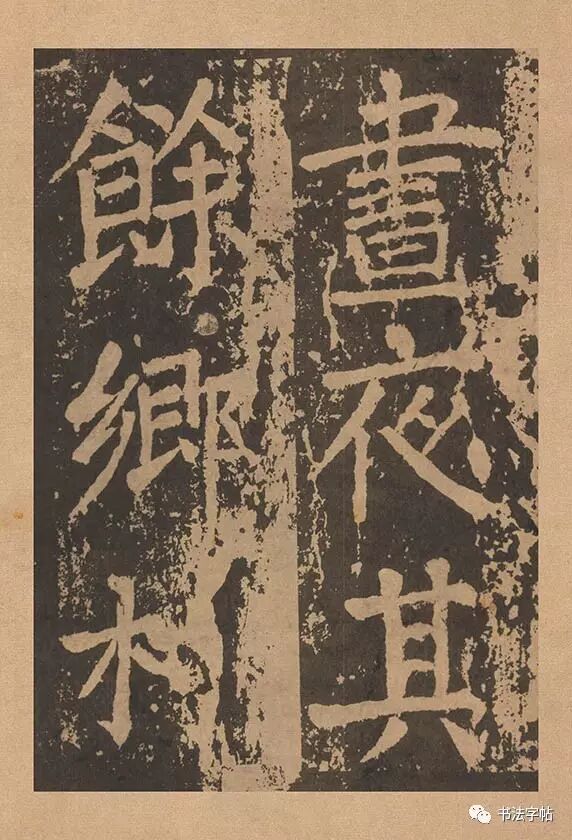 晝夜其
餘鄉村
书法字帖